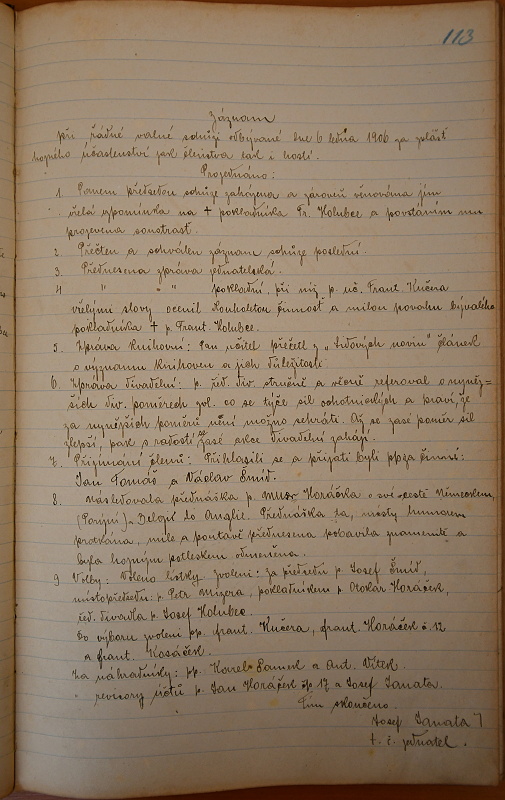 113
Záznam
při řádné valné schůzi odbývané dne 6. ledna 1906 za zvlášť
hojného účastenství jak členstva tak i hostí.
Projednáno:
1. Panem předsedou schůze zahájena a zároveň věnována jím
vřelá vzpomínka na + pokladníka Fr. Holubce a povstáním mu
projevena soustrast.
2. Přečten a schválen záznam schůze poslední.
3. Přednesena zpráva jednatelská.
4 " " " pokladní, při níž p. uč. Frant. Kučera
vřelými slovy ocenil dlouholetou činnost a milou povahu bývalého
pokladníka + p. Frant. Holubce.
5. Zpráva knihovní: Pan učitel přečetl z „Lidových novin" článek
o významu knihoven a jich důležitosti.
6. Zpráva divadelní: p. řed. div. stručně a věcně referoval o nyněj-
ších div. poměrech zvl. co se týče sil ochotnických a praví, že
za nynějších poměrů není možno sehráti. Až se zase poměr sil
zlepší, pak s radostí se zase akce divadelní zahájí.
7. Přijímání členů: Přihlásili se a přijati byli pp. za činné:
Jan Tomáš a Václav Šmíd.
8. Následovala přednáška p. MUC Horáčka o své cestě Německem,
(Paříží), Belgií do Anglie. Přednáška ta, místy humorem
protkána, mile a poutavě přednesena pobavila znamenitě a
byla hojným potleskem odměněna.
9 Volby: Voleno lístky zvoleni: za předsedu p. Josef Šmíd,
místopředsedu: p. Petr Mizera, pokladníkem p. Otokar Horáček,
řed. divadla p. Josef Holubec.
Do výboru zvoleni pp. Frant. Kučera, Frant. Horáček č. 12
a Frant. Kasáček.
Za náhradníky: pp. Karel Samek a Ant. Vítek.
" revisory účtů p. Jan Horáček čp 17 a Josef Janata.
Tím skončeno.
Josef Janata
t. č. jednatel.